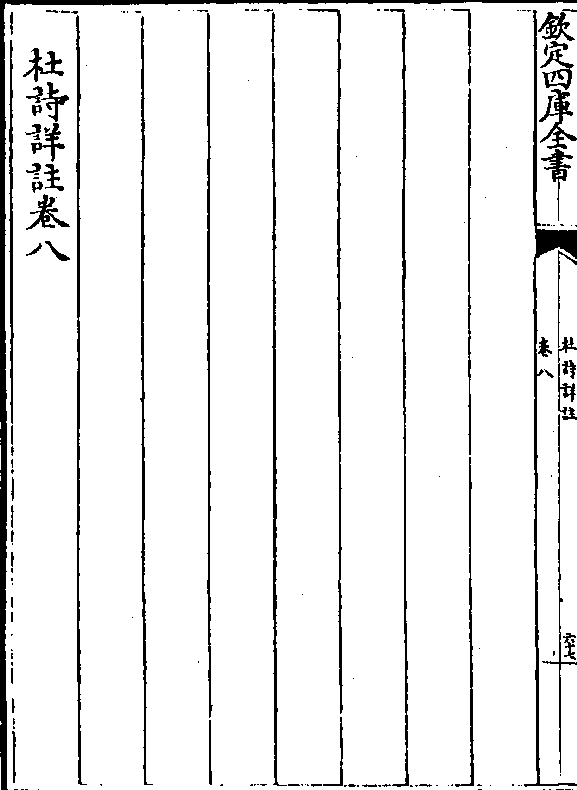 欽定四庫全書
杜詩詳註
卷八
六十七
杜詩詳註卷八